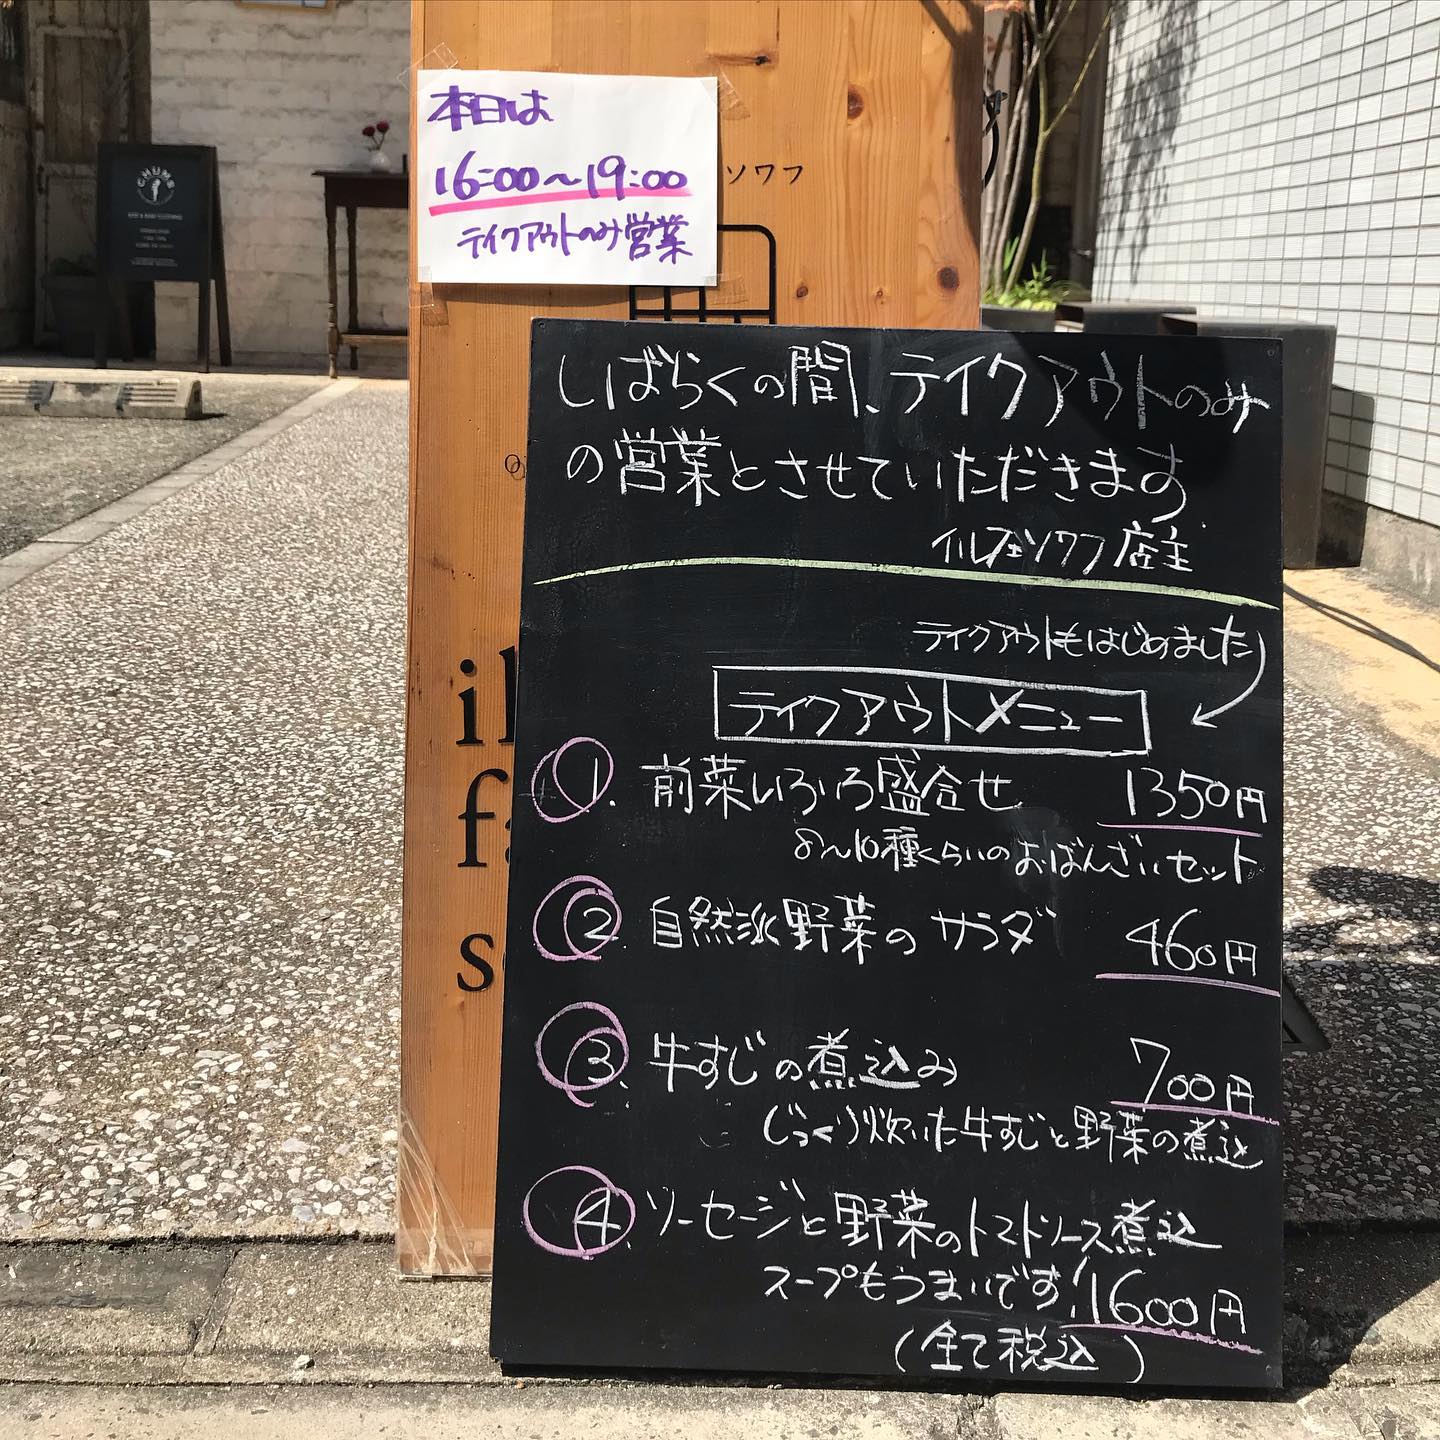 本日は
16:00〜19:00
テイクアウトのみ営業
ソワフ
CHUMS
しばらくの間、テイクアウトのみ
の営業とさせていただきます
イルフェソワフ店主
テイクアウトもはじめました
テイクアウトメニュー
1. 前菜いろいろ盛合せ 1350円
8〜10種くらいのおばんざいセット
2. 自然派野菜のサラダ 460円
3. 牛すじの煮込み 700円
じっくり炊いた牛すじと野菜の煮込
4. ソーセージと野菜のトマトソース煮込
スープもうまいです! 1600円
(全て税込)
il
fa
s